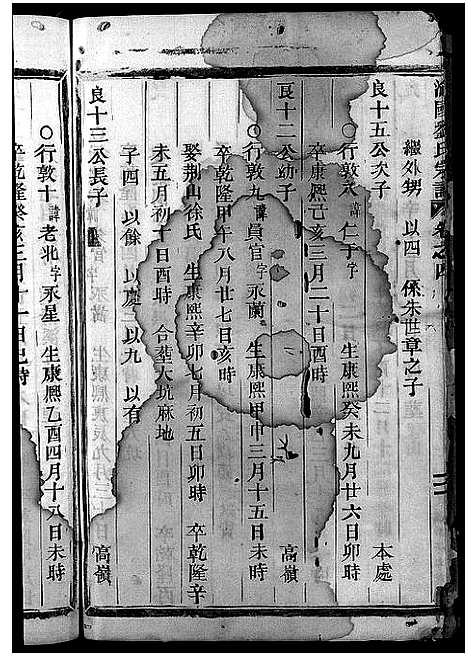 氏宗譜 卷之四
繼外甥 以四 係朱世章之子
良十五公次子 本處
○行敦八 諱仁 字 生康熙癸未九月廿六日卯時
卒康熙己亥三月二十日酉時
良十二公幼子 高嶺
○行敦九 諱員官 字永蘭 生康熙甲申三月十五日未時
卒乾隆甲午八月廿七日亥時
娶荆山徐氏 生康熙辛卯七月初五日卯時 卒乾隆辛
未五月初十日酉時 合葬大坑麻地
子四 以餘 以慶 以九 以有
良十三公長子 高嶺
○行敦十 諱老北 字永星 生康熙乙酉四月十八日未時
卒乾隆癸亥三月十一日巳時